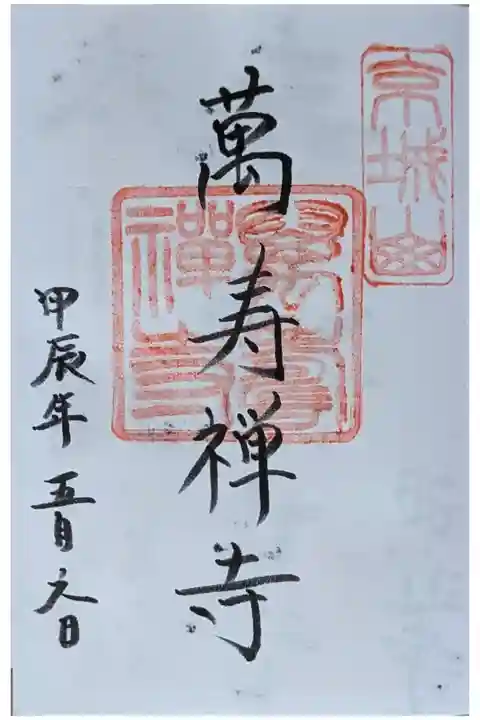 京城山
萬寿禅寺
萬壽
禪寺
甲辰年 五月六日